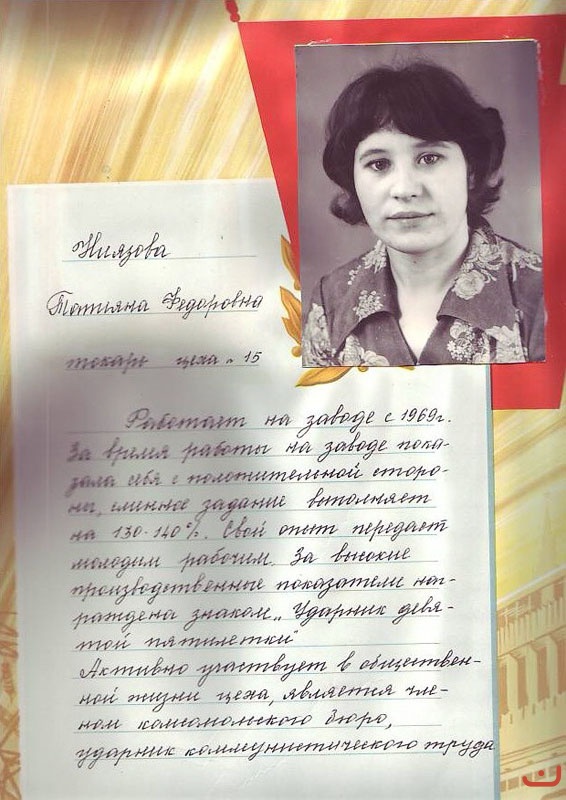 Ниязова
Татьяна Федоровна
токарь цеха № 15
Работает на заводе с 1969г.
За время работы на заводе пока-
зала себя с положительной сторо-
ны, сменное задание выполняет
на 130-140%. Свой опыт передает
молодым рабочим. За высокие
производственные показатели наг-
раждена знаком „Ударник девя-
той пятилетки"
Активно участвует в обществен-
ной жизни цеха, является чле-
ном комсомольского бюро,
ударник коммунистического труда